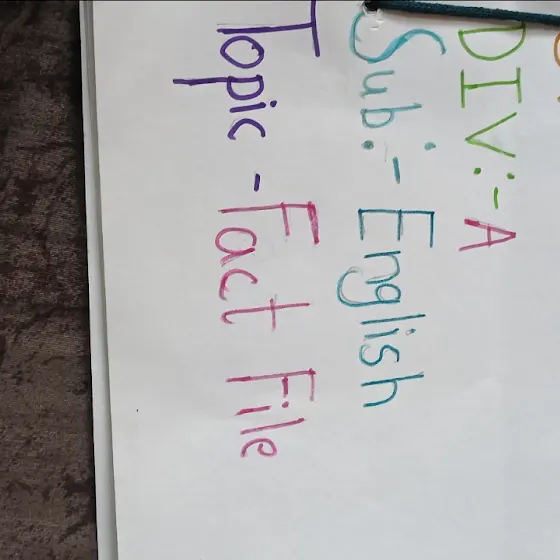 DIV:- A
Sub:- English
Topic - Fact File